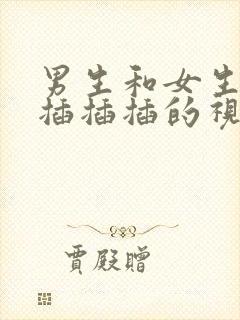 男生和女生
插插插的視
賈殿贈